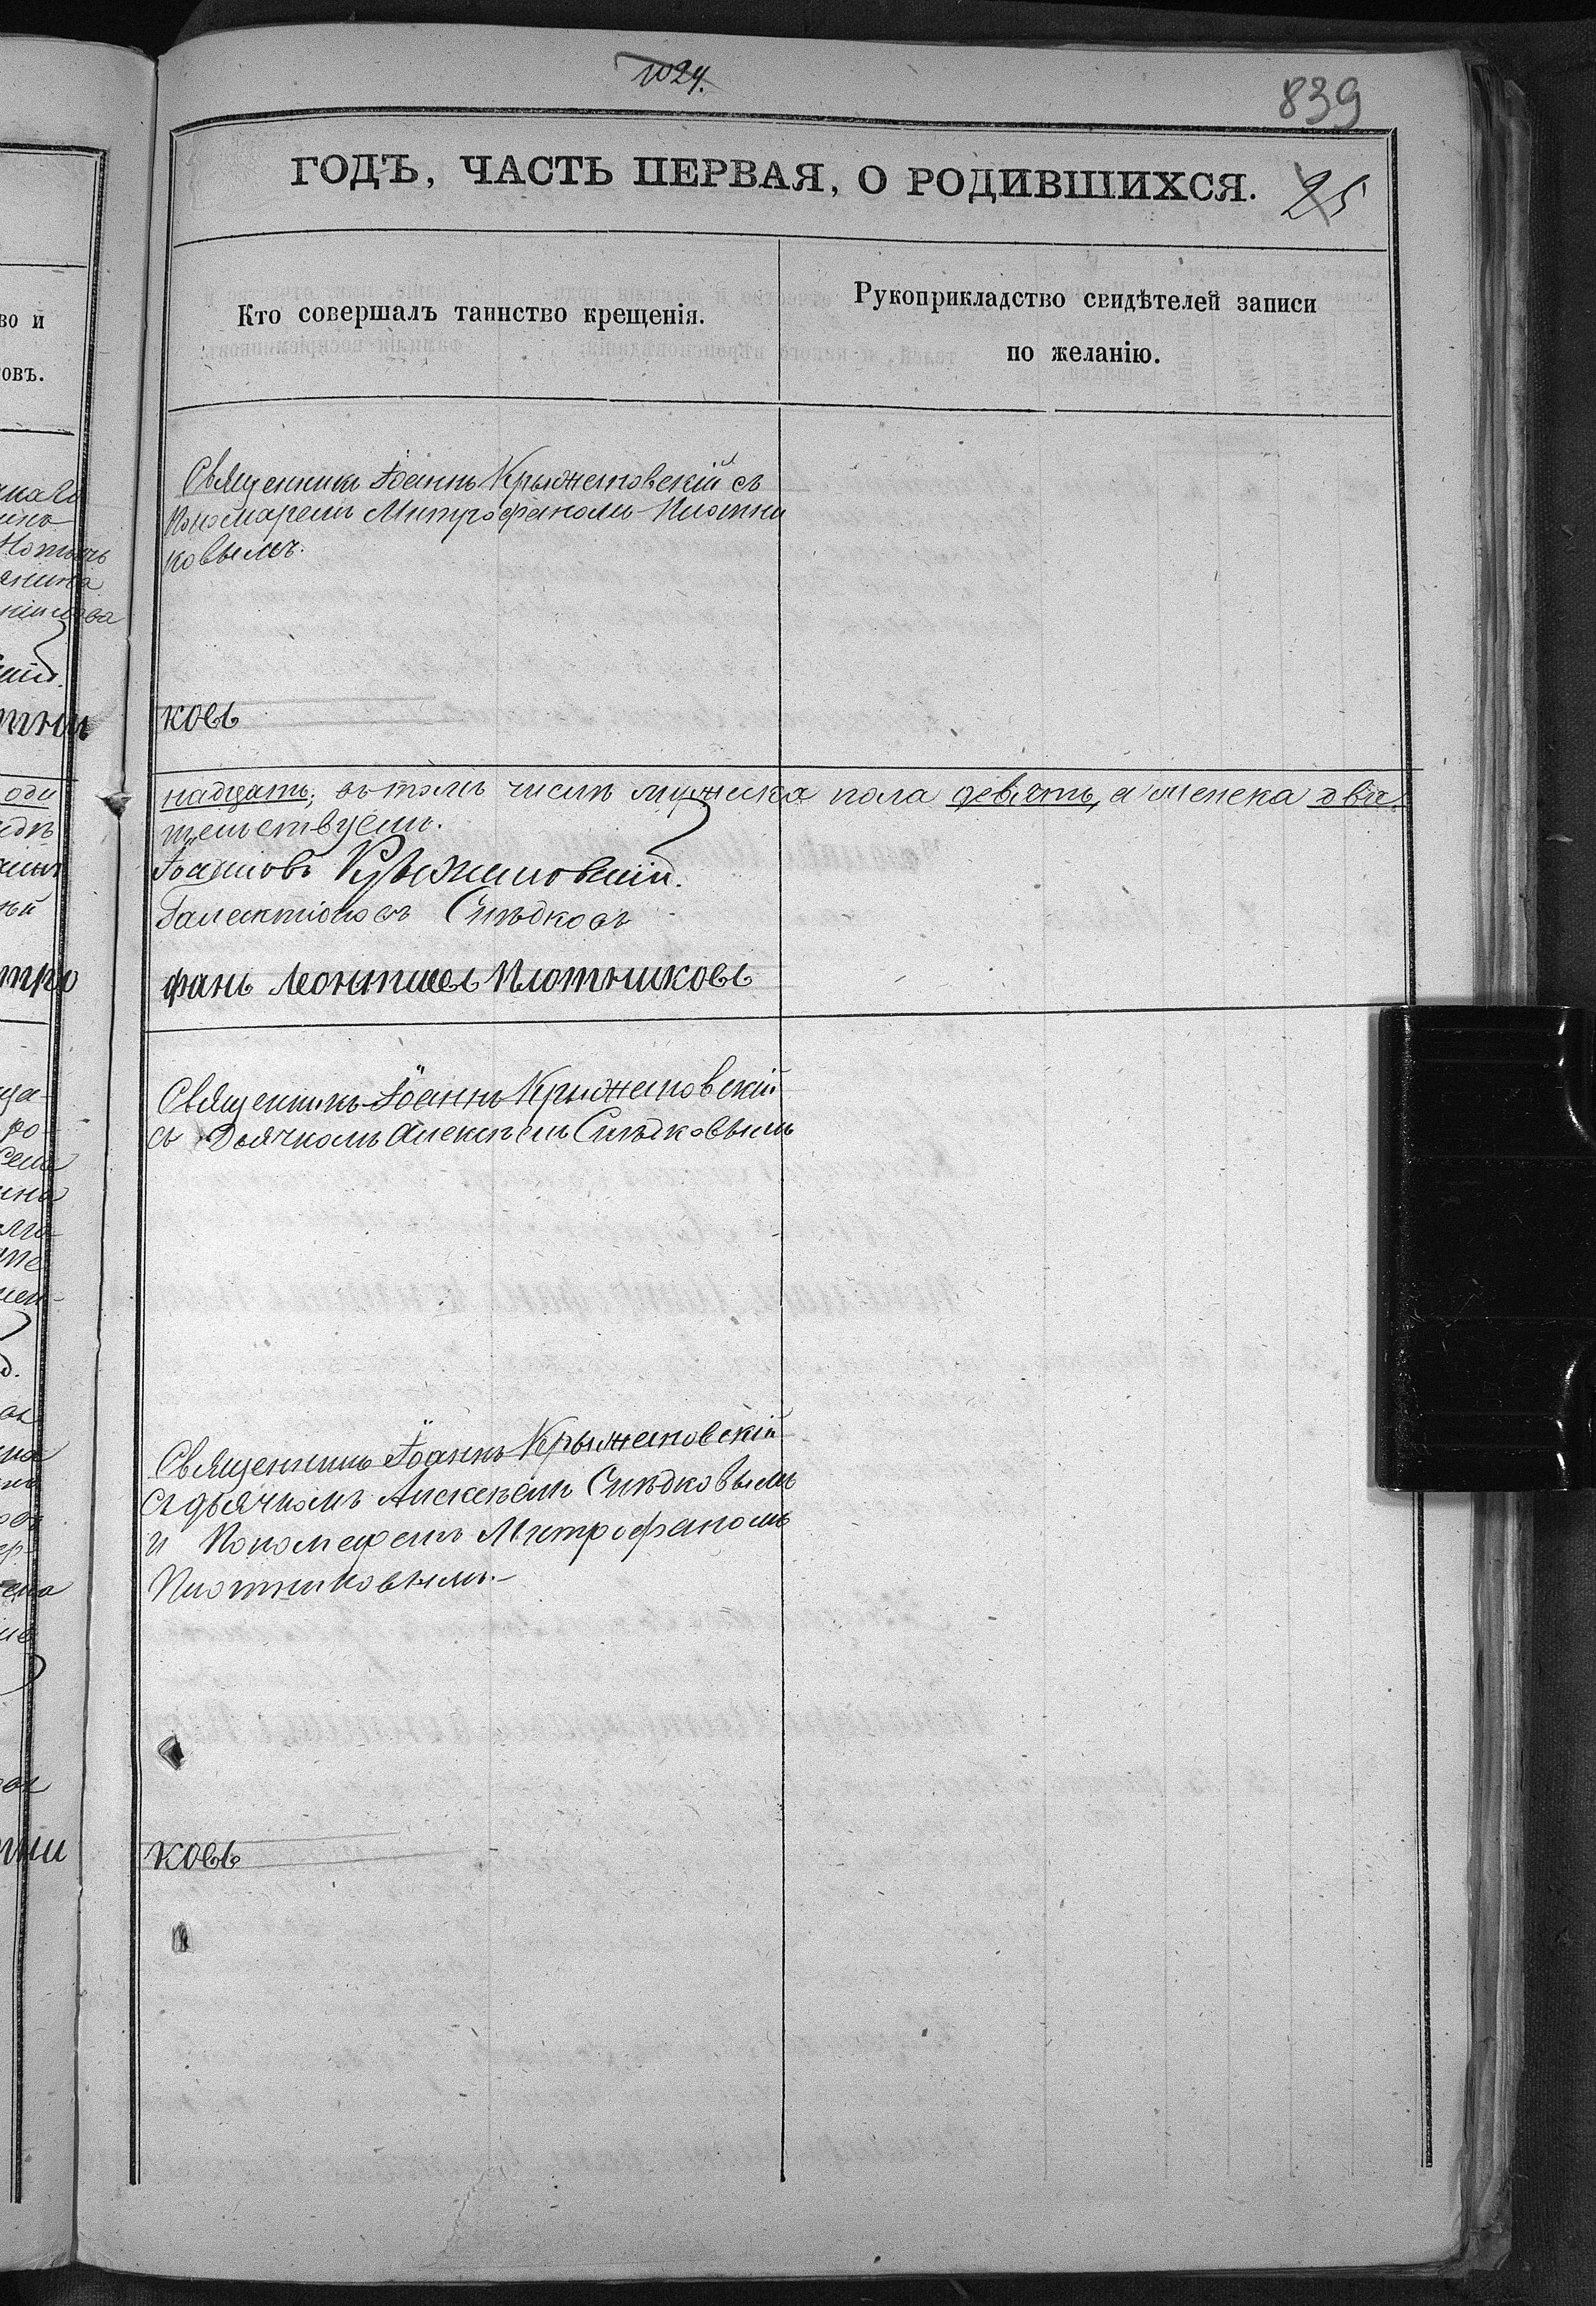 1024.
839
ГОДЪ, ЧАСТЬ ПЕРВАЯ, О РОДИВШИХСЯ.
25
во и
овъ.
Кто совершалъ таинство крещенія.
Рукоприкладство свидѣтелей записи
по желанію.
Священникъ Іоаннъ Крыжановскій съ
Пономаремъ Митрофаномъ Плотни
ковымъ.
ковъ
надцать; въ томъ числѣ мужеска пола девять, а женска двѣ.
тельствуемъ.
Іоанновъ Крыжановскій.
Галактіоновъ Слѣдковъ
фанъ Леонтиевъ Плотниковъ
Священникъ Іоаннъ Крыжановскій
съ Дьячкомъ Алексѣемъ Слѣдковымъ
Священникъ Іоаннъ Крыжановскій
съ дьячкомъ Алексѣемъ Слѣдковымъ
и Пономаремъ Митрофаномъ
Плотниковымъ.
ковъ